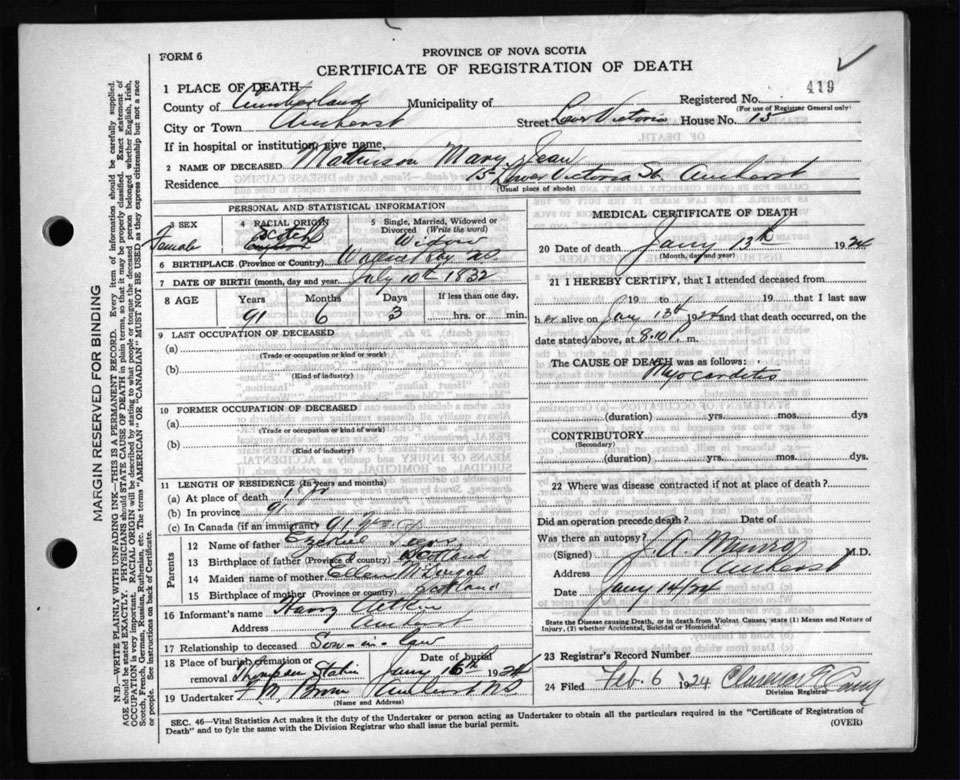 PROVINCE OF NOVA SCOTIA
FORM 6
CERTIFICATE OF REGISTRATION OF DEATH
419
1 PLACE OF DEATH
County of Cumberland Municipality of Registered No.
(For use of Registrar General only)
City or Town Amherst Street Lower Victoria House No. 15
If in hospital or institution give name,
2 NAME OF DECEASED Matheson Mary Jean
Residence 15 Lower Victoria St. Amherst
(Usual place of abode)
PERSONAL AND STATISTICAL INFORMATION
3 SEX Female
4 RACIAL ORIGIN Scotch
5 Single, Married, Widowed or Divorced (Write the word) Widow
6 BIRTHPLACE (Province or Country) Wallace Bay
7 DATE OF BIRTH (month, day and year) July 10th 1832
8 AGE Years Months Days If less than one day,
91 6 3 hrs. or min.
9 LAST OCCUPATION OF DECEASED
(a)
(Trade or occupation or kind or work)
(b)
(Kind of industry)
10 FORMER OCCUPATION OF DECEASED
(a)
(Trade or occupation or kind of work)
(b)
(Kind of industry)
11 LENGTH OF RESIDENCE (In years and months)
(a) At place of death 1 yr
(b) In province 91
(c) In Canada (if an immigrant) 91 yrs
Parents
12 Name of father Ezekiel
13 Birthplace of father (Province or country) Scotland
14 Maiden name of mother Ellen McDougal
15 Birthplace of mother (Province or country) Scotland
16 Informant's name Harry
Address Amherst
17 Relationship to deceased Son-in-law
18 Place of burial, cremation or removal Thompson Station Date of burial Jany 16th 1924
19 Undertaker Brown Amherst NS
(Name and Address)
MEDICAL CERTIFICATE OF DEATH
20 Date of death Jany 13th 1924
(Month, day and year)
21 I HEREBY CERTIFY, that I attended deceased from
19 to 19 that I last saw
h er alive on Jany 13th 1924 and that death occurred, on the
date stated above, at m.
The CAUSE OF DEATH was as follows:
Myocarditis
(duration) yrs. mos. dys
CONTRIBUTORY
(Secondary)
(duration) yrs. mos. dys.
22 Where was disease contracted if not at place of death?
Did an operation precede death? Date of
Was there an autopsy?
(Signed) J. A. Munro M.D.
Address Amherst
Date Jany 14/24
State the Disease causing Death, or in Death from Violent Causes, state (1) Means and Nature of
Injury, (2) whether Accidental, Suicidal or Homicidal.
23 Registrar's Record Number
24 Filed Feb. 6 1924 Clarence
Division Registrar
SEC. 46—Vital Statistics Act makes it the duty of the Undertaker or person acting as Undertaker to obtain all the particulars required in the "Certificate of Registration of
Death" and to fyle the same with the Division Registrar who shall issue the burial permit.
(OVER)
MARGIN RESERVED FOR BINDING
N.B.—WRITE PLAINLY WITH UNFADING INK—THIS IS A PERMANENT RECORD. Every item of information should be carefully supplied.
AGE should be stated EXACTLY. PHYSICIANS should STATE CAUSE OF DEATH in plain terms, so that it may be properly classified. Exact statement of
OCCUPATION is very important. RACIAL ORIGIN will be described by stating to what people or tongue the deceased person belonged whether English, Irish,
Scotch, French, German, Russian, Ruthenian, etc. The terms "AMERICAN" OR "CANADIAN" MUST NOT BE USED as they express citizenship but not a race
or people. See instructions on back of Certificate.